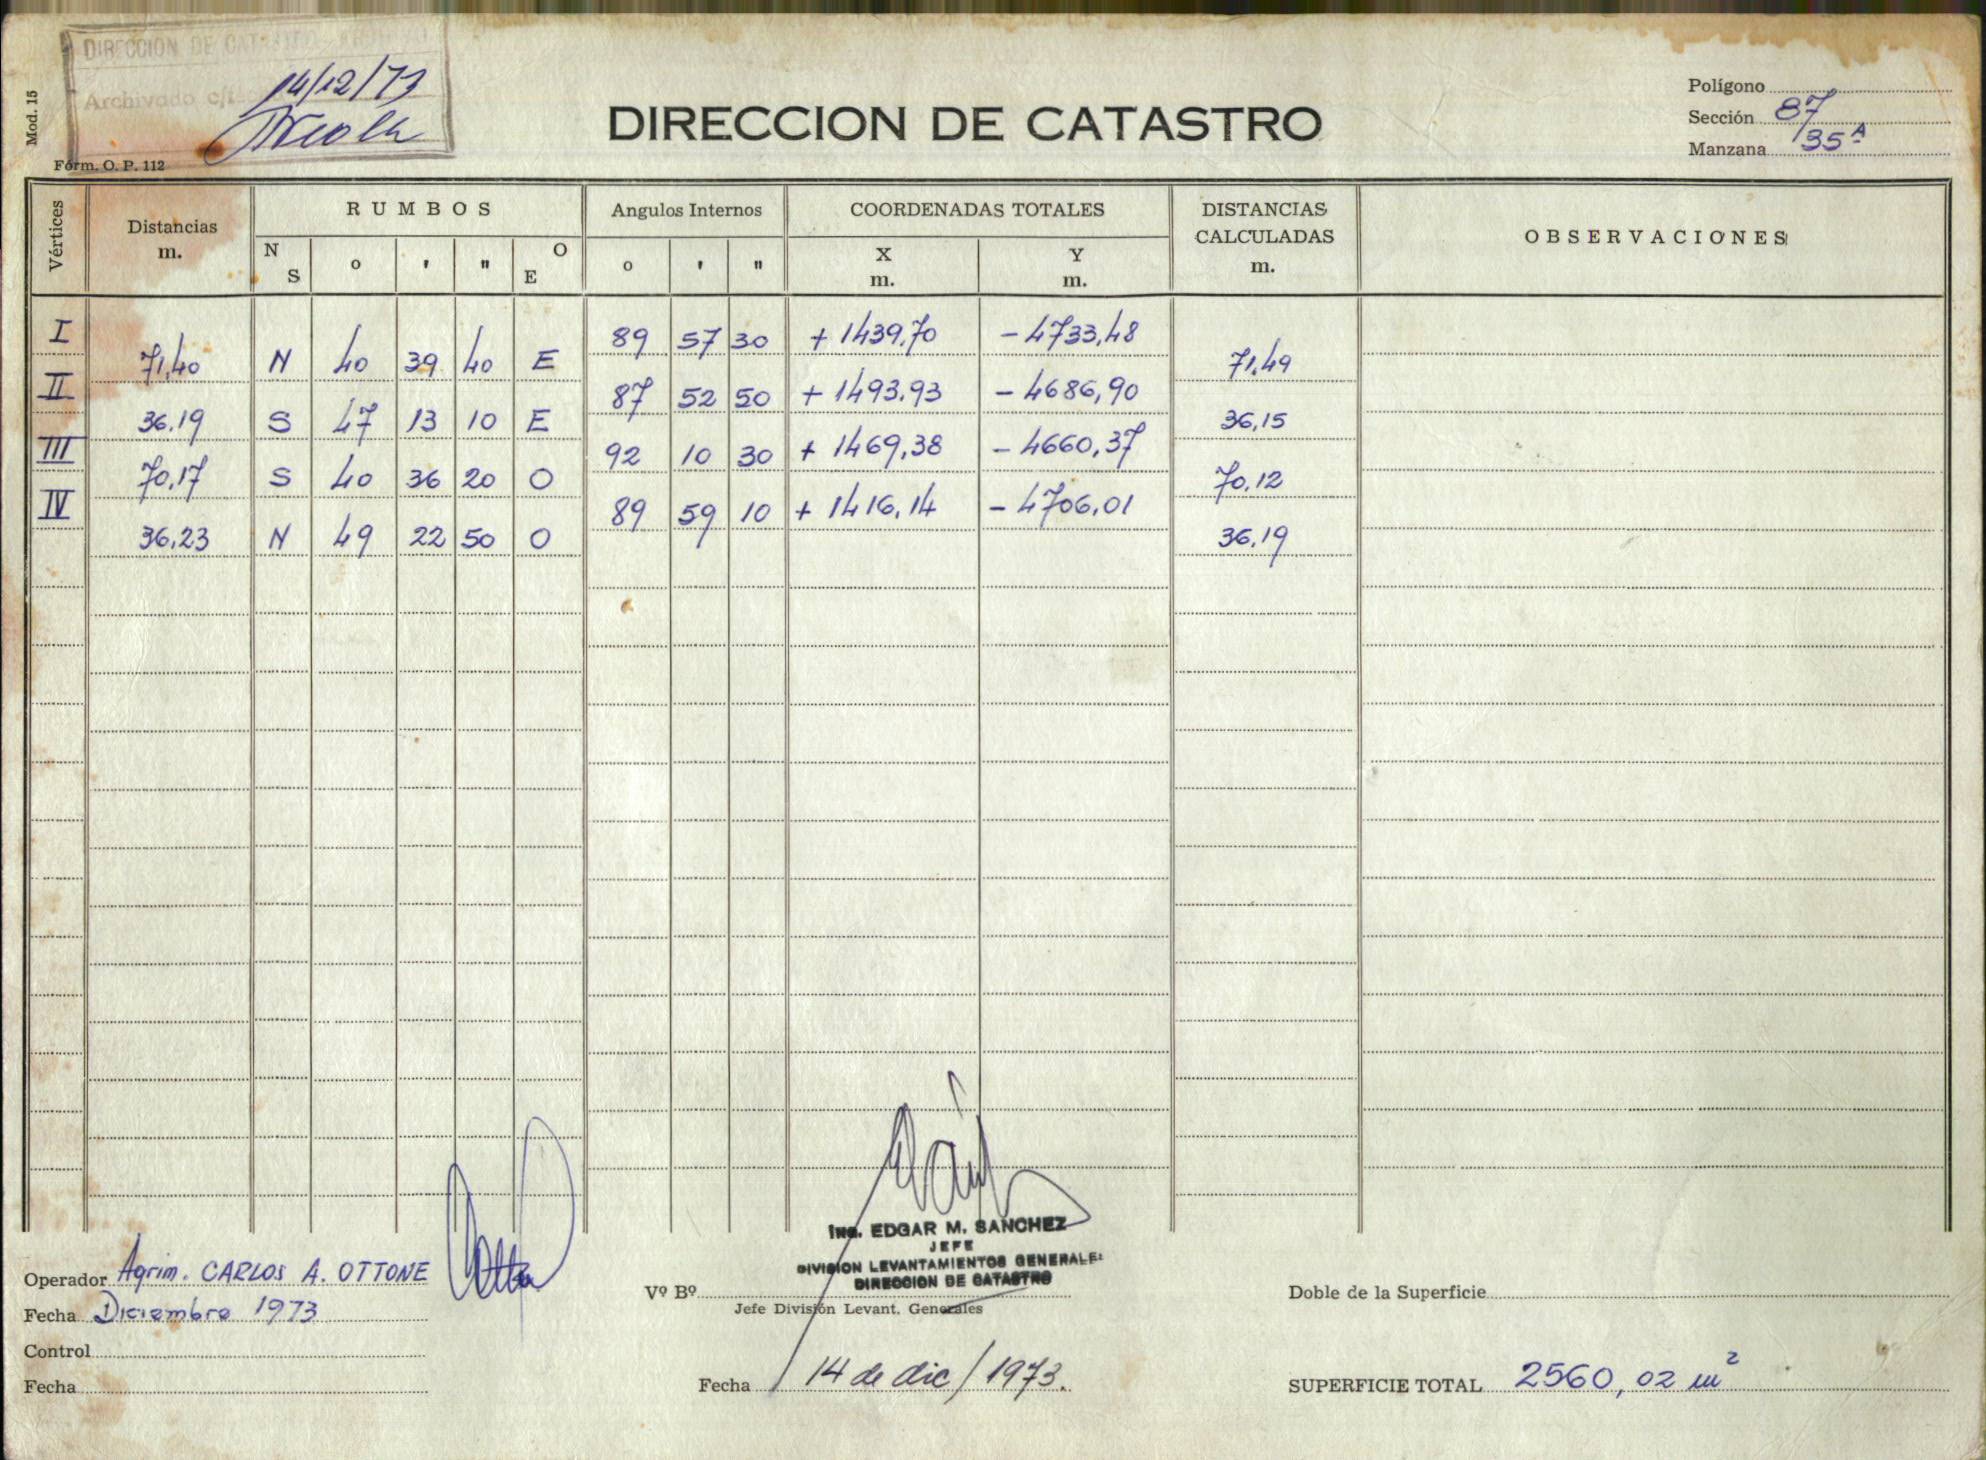 DIRECCION DE CATASTRO - ARCHIVO
Archivado c/f
14/12/73
Mod. 15
Form. O. P. 112
DIRECCION DE CATASTRO
Polígono
Sección 87
Manzana 35ᴬ
Vértices
Distancias
m.
RUMBOS
N S o ' " O E
Angulos Internos
o ' "
COORDENADAS TOTALES
X Y
m. m.
DISTANCIAS
CALCULADAS
m.
OBSERVACIONES
I 89 57 30 + 1439,70 - 4733,48
71,40 N 40 39 40 E 71,49
II 87 52 50 + 1493,93 - 4686,90
36,19 S 47 13 10 E 36,15
III 92 10 30 + 1469,38 - 4660,37
70,17 S 40 36 20 O 70,12
IV 89 59 10 + 1416,14 - 4706,01
36,23 N 49 22 50 O 36,19
Ing. EDGAR M. SANCHEZ
JEFE
DIVISION LEVANTAMIENTOS GENERALES
DIRECCION DE CATASTRO
Operador Agrim. CARLOS A. OTTONE
Fecha Diciembre 1973
Control
Fecha
Vº Bº
Jefe División Levant. Generales
Fecha 14 de dic/1973.
Doble de la Superficie
SUPERFICIE TOTAL 2560,02 m²